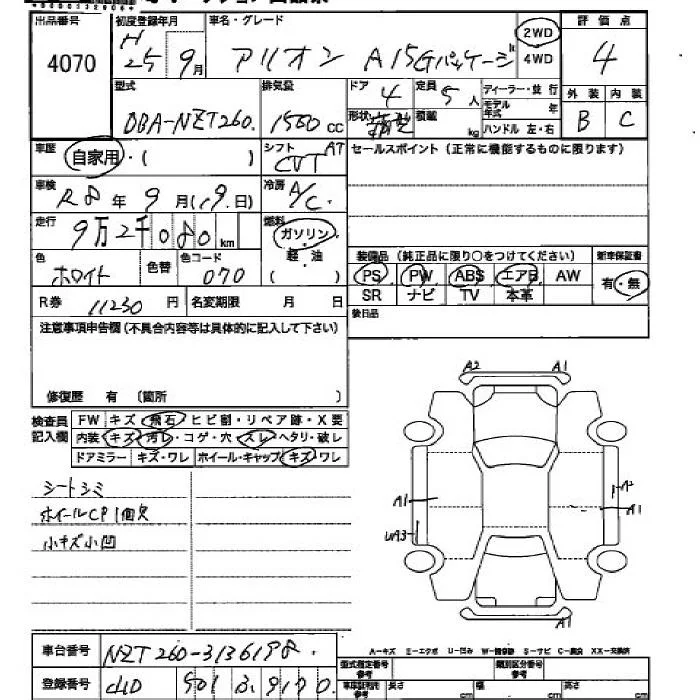 出品番号 初度登録年月 車名・グレード 評価点
4070 H25 9月 アリオン A15Gパッケージ 2WD 4WD 4
型式 排気量 ドア 4 定員 5人 ディーラー・並行 外装 内装
DBA-NZT260. 1500cc 形状 積載 kg モデル年式 年 ハンドル 左・右 B C
車歴 自家用・( ) シフト AT CVT セールスポイント(正常に機能するものに限ります)
車検 R8年9月(19日) 冷房 A/C
走行 9万2千080km 燃料 ガソリン・軽・油 ( )
色 ホワイト 色替 色コード 070
装備品(純正品に限り○をつけてください) 新車保証書
PS PW ABS エアB AW 有・無
SR ナビ TV 本革
R券 11230円 名変期限 月 日 後日品
注意事項申告欄(不具合内容等は具体的に記入して下さい)
修復歴 有 〔箇所 〕
検査員記入欄 FW キズ・飛石・ヒビ割・リペア跡・X要
内装 キズ・汚れ・コゲ・穴・スレ・ヘタリ・破レ
ドアミラー キズ・ワレ ホイール・キャップ キズ・ワレ
シートシミ
ホイールCP1個欠
小キズ小凹
A2 A1
A1 A2
A1
UA3
A1
車台番号 NZT260-3136198.
A-キズ E-エクボ U-凹み W-補修跡 S-サビ C-腐食 XX-交換済
登録番号
型式指定番号 参考 類別区分番号 参考
長さ cm 幅 cm 高さ cm